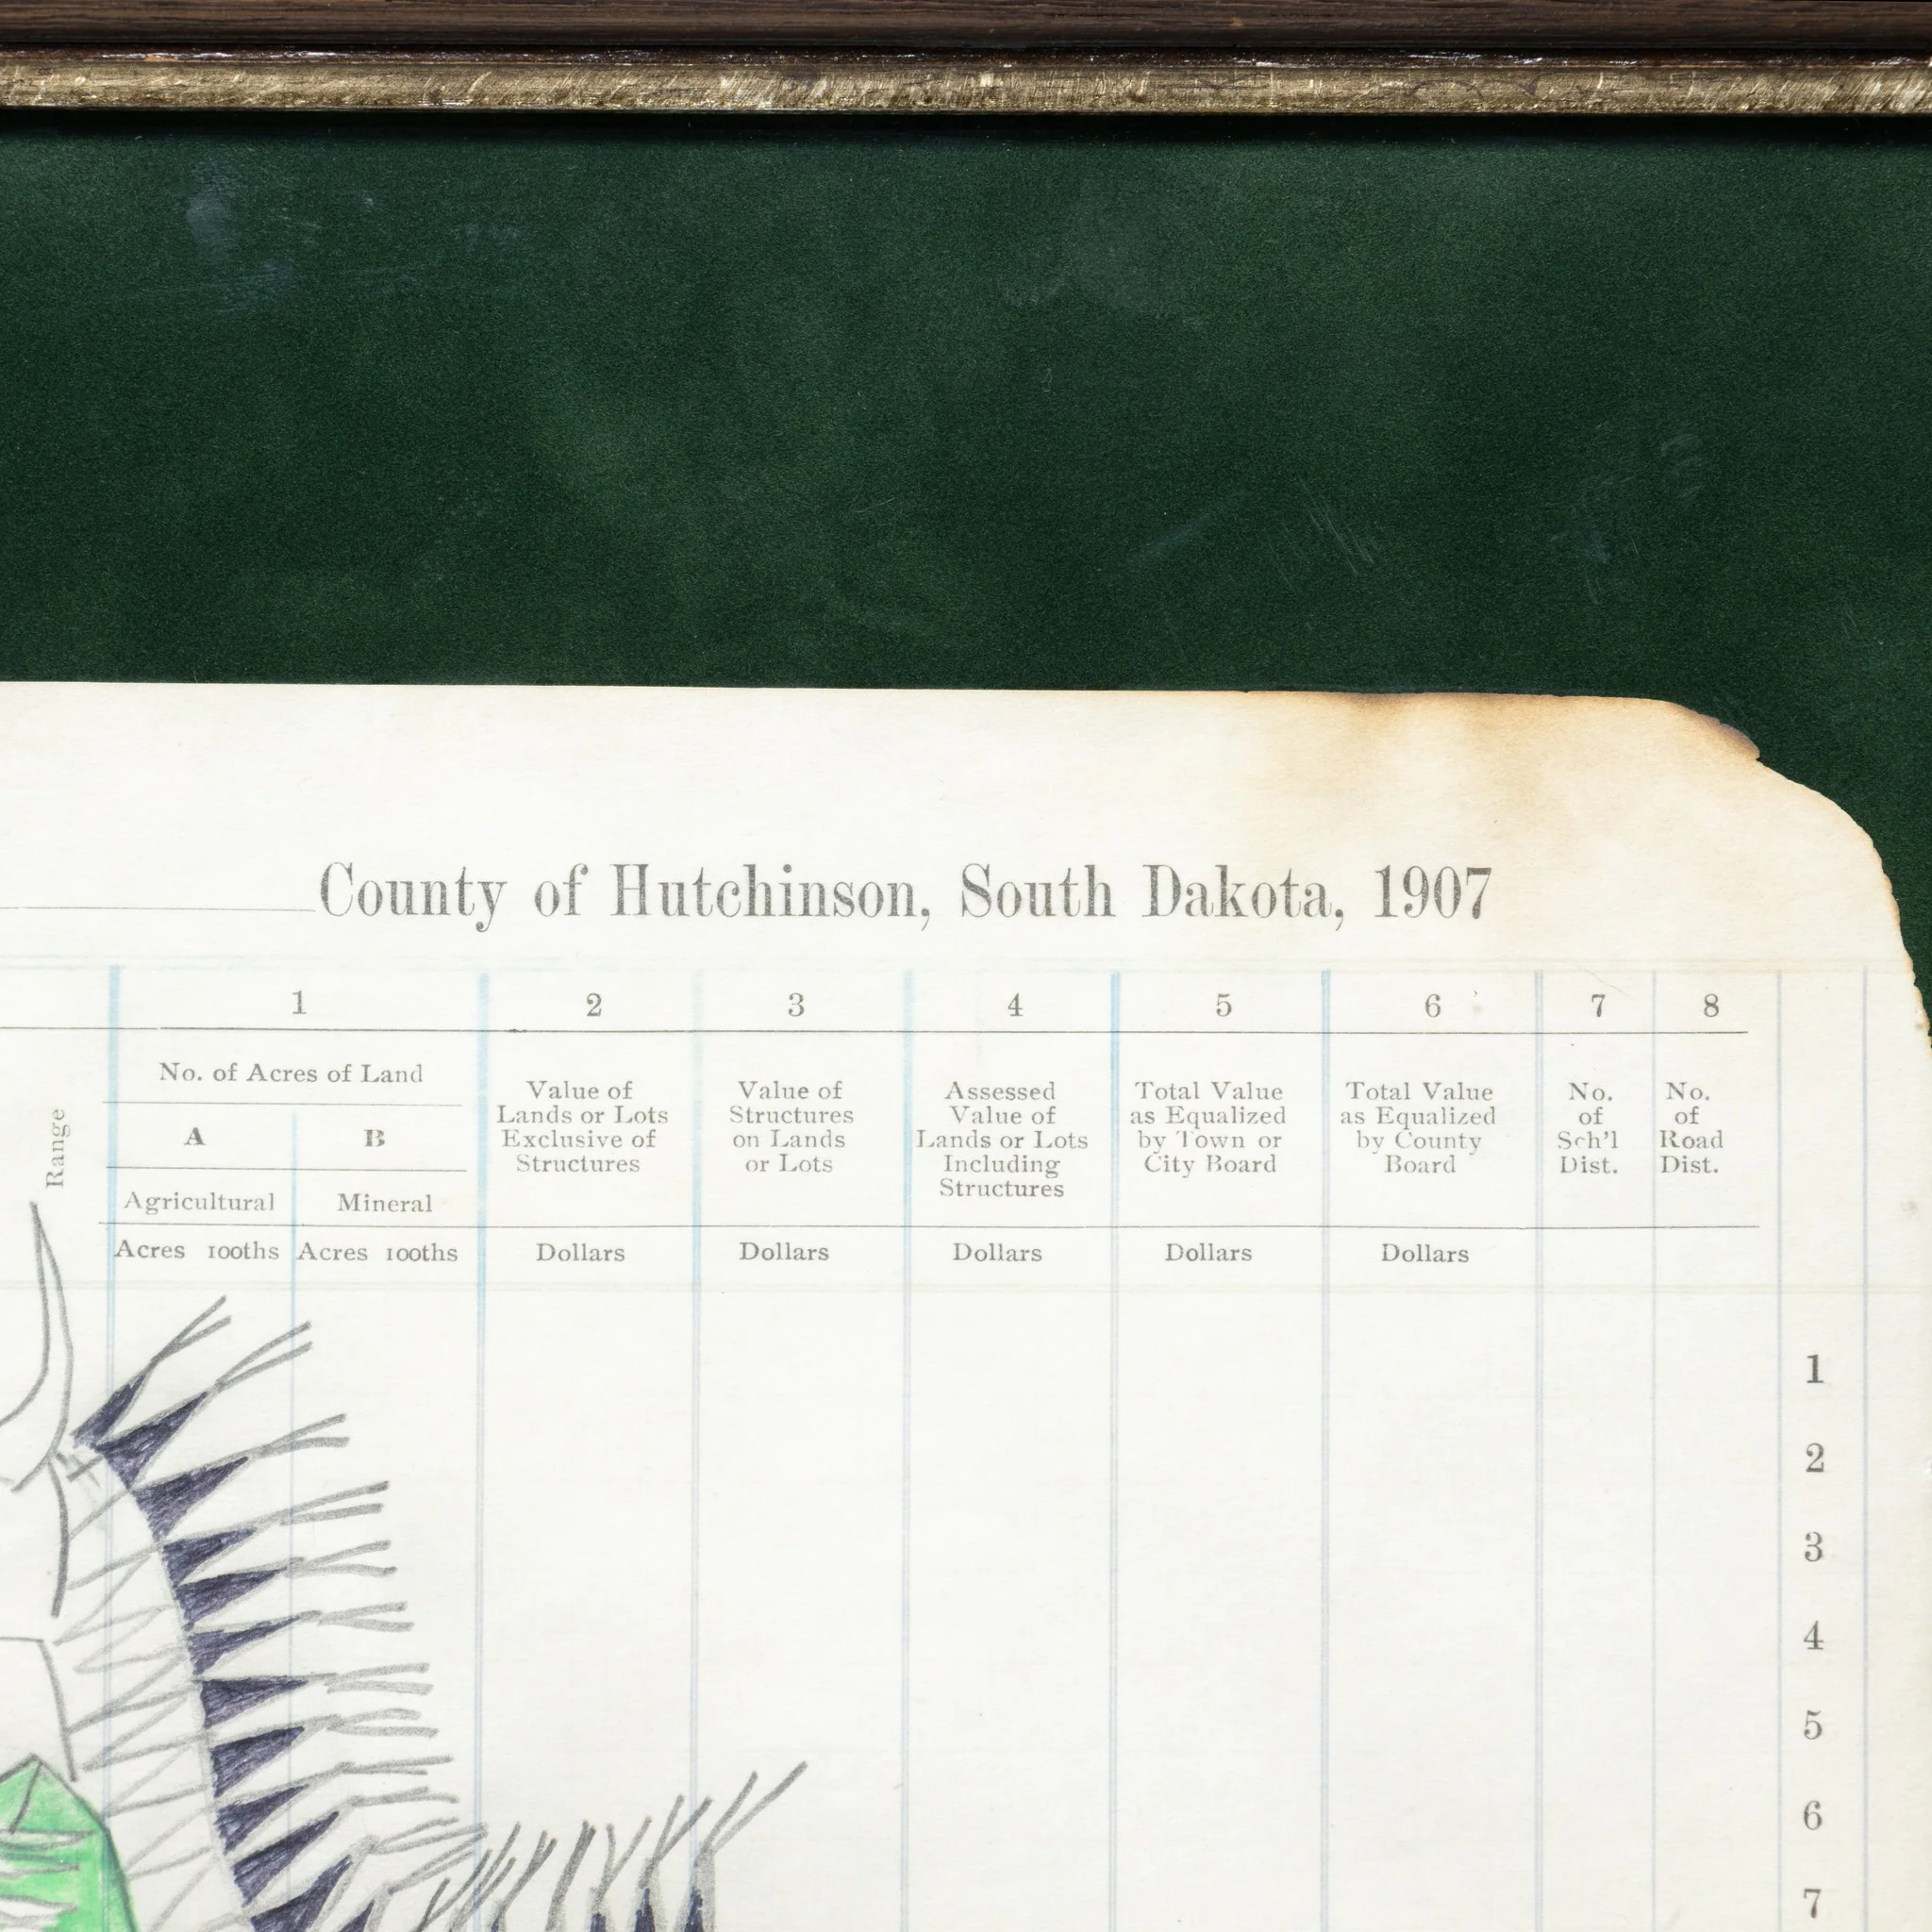 County of Hutchinson, South Dakota, 1907
1 2 3 4 5 6 7 8
Range
No. of Acres of Land
A B
Agricultural Mineral
Acres 100ths Acres 100ths
Value of
Lands or Lots
Exclusive of
Structures
Dollars
Value of
Structures
on Lands
or Lots
Dollars
Assessed
Value of
Lands or Lots
Including
Structures
Dollars
Total Value
as Equalized
by Town or
City Board
Dollars
Total Value
as Equalized
by County
Board
Dollars
No.
of
Sch'l
Dist.
No.
of
Road
Dist.
1
2
3
4
5
6
7